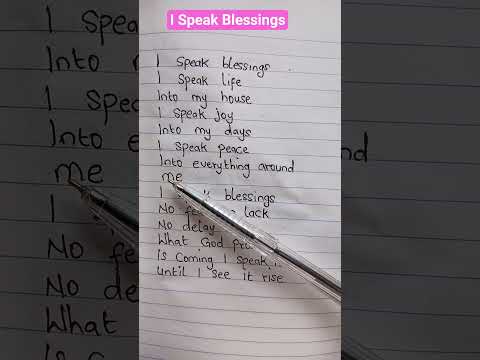 I Speak Blessings
I Speak blessings
I Speak life
Into my house
I Speak joy
Into my days
I Speak peace
Into everything around
me
I blessings
No lack
No delay
What God
Is coming I speak
until I see it rise